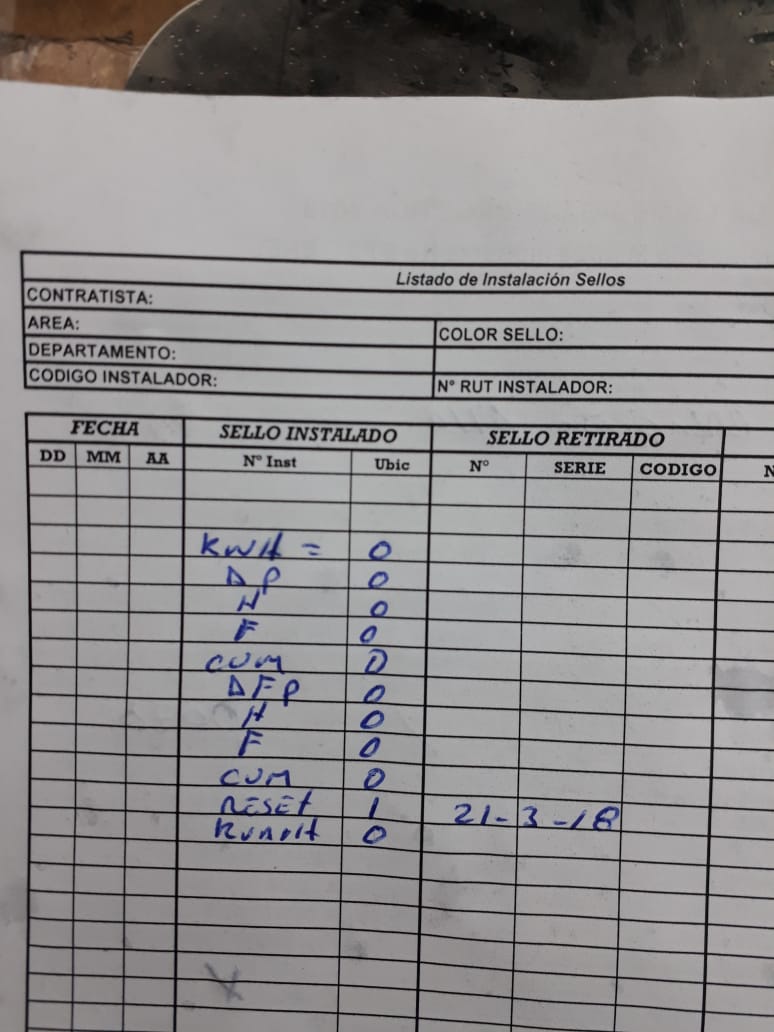 Listado de Instalación Sellos
CONTRATISTA:
AREA:
COLOR SELLO:
DEPARTAMENTO:
CODIGO INSTALADOR:
N° RUT INSTALADOR:
FECHA SELLO INSTALADO SELLO RETIRADO
DD MM AA N° Inst Ubic N° SERIE CODIGO N
KWH = 0
DP 0
H 0
F 0
CUM 0
DFP 0
H 0
F 0
CUM 0
RESET 1 21-3-18
0